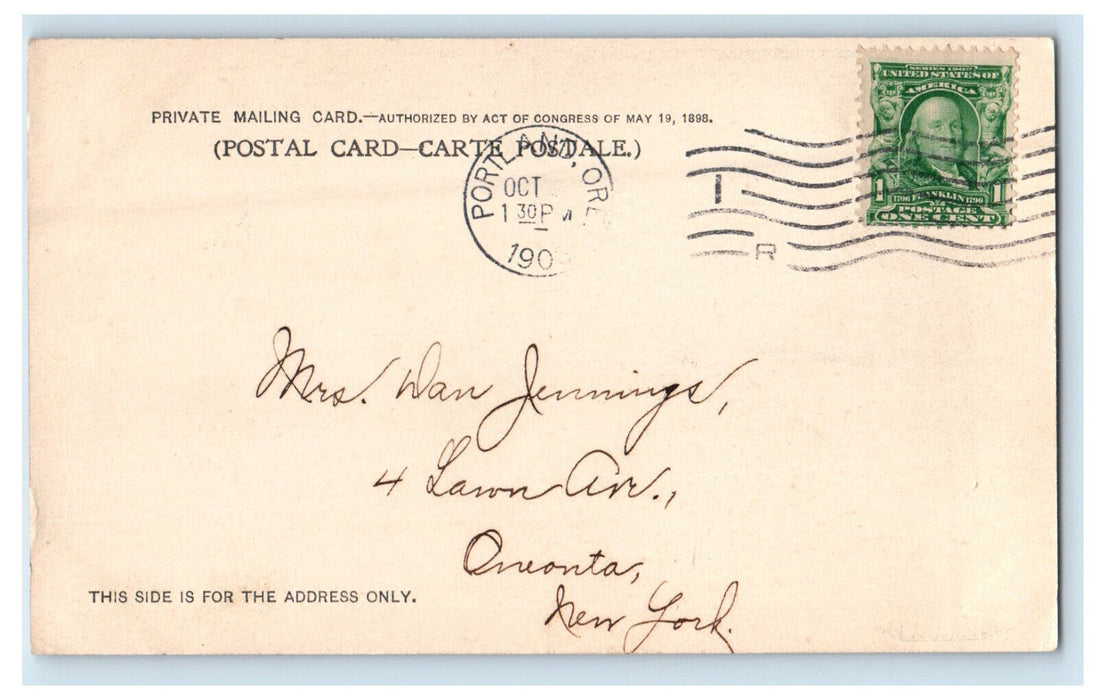 PRIVATE MAILING CARD.—AUTHORIZED BY ACT OF CONGRESS OF MAY 19, 1898.
(POSTAL CARD—CARTE POSTALE.)
SERIES 1902
UNITED STATES OF
AMERICA
1 1
1706 FRANKLIN 1790
POSTAGE
ONE CENT
PORTLAND, ORE
OCT
1 30 P M
190
I
R
Mrs. Dan Jennings,
4 Lawn Ave.,
Oneonta,
New York.
THIS SIDE IS FOR THE ADDRESS ONLY.